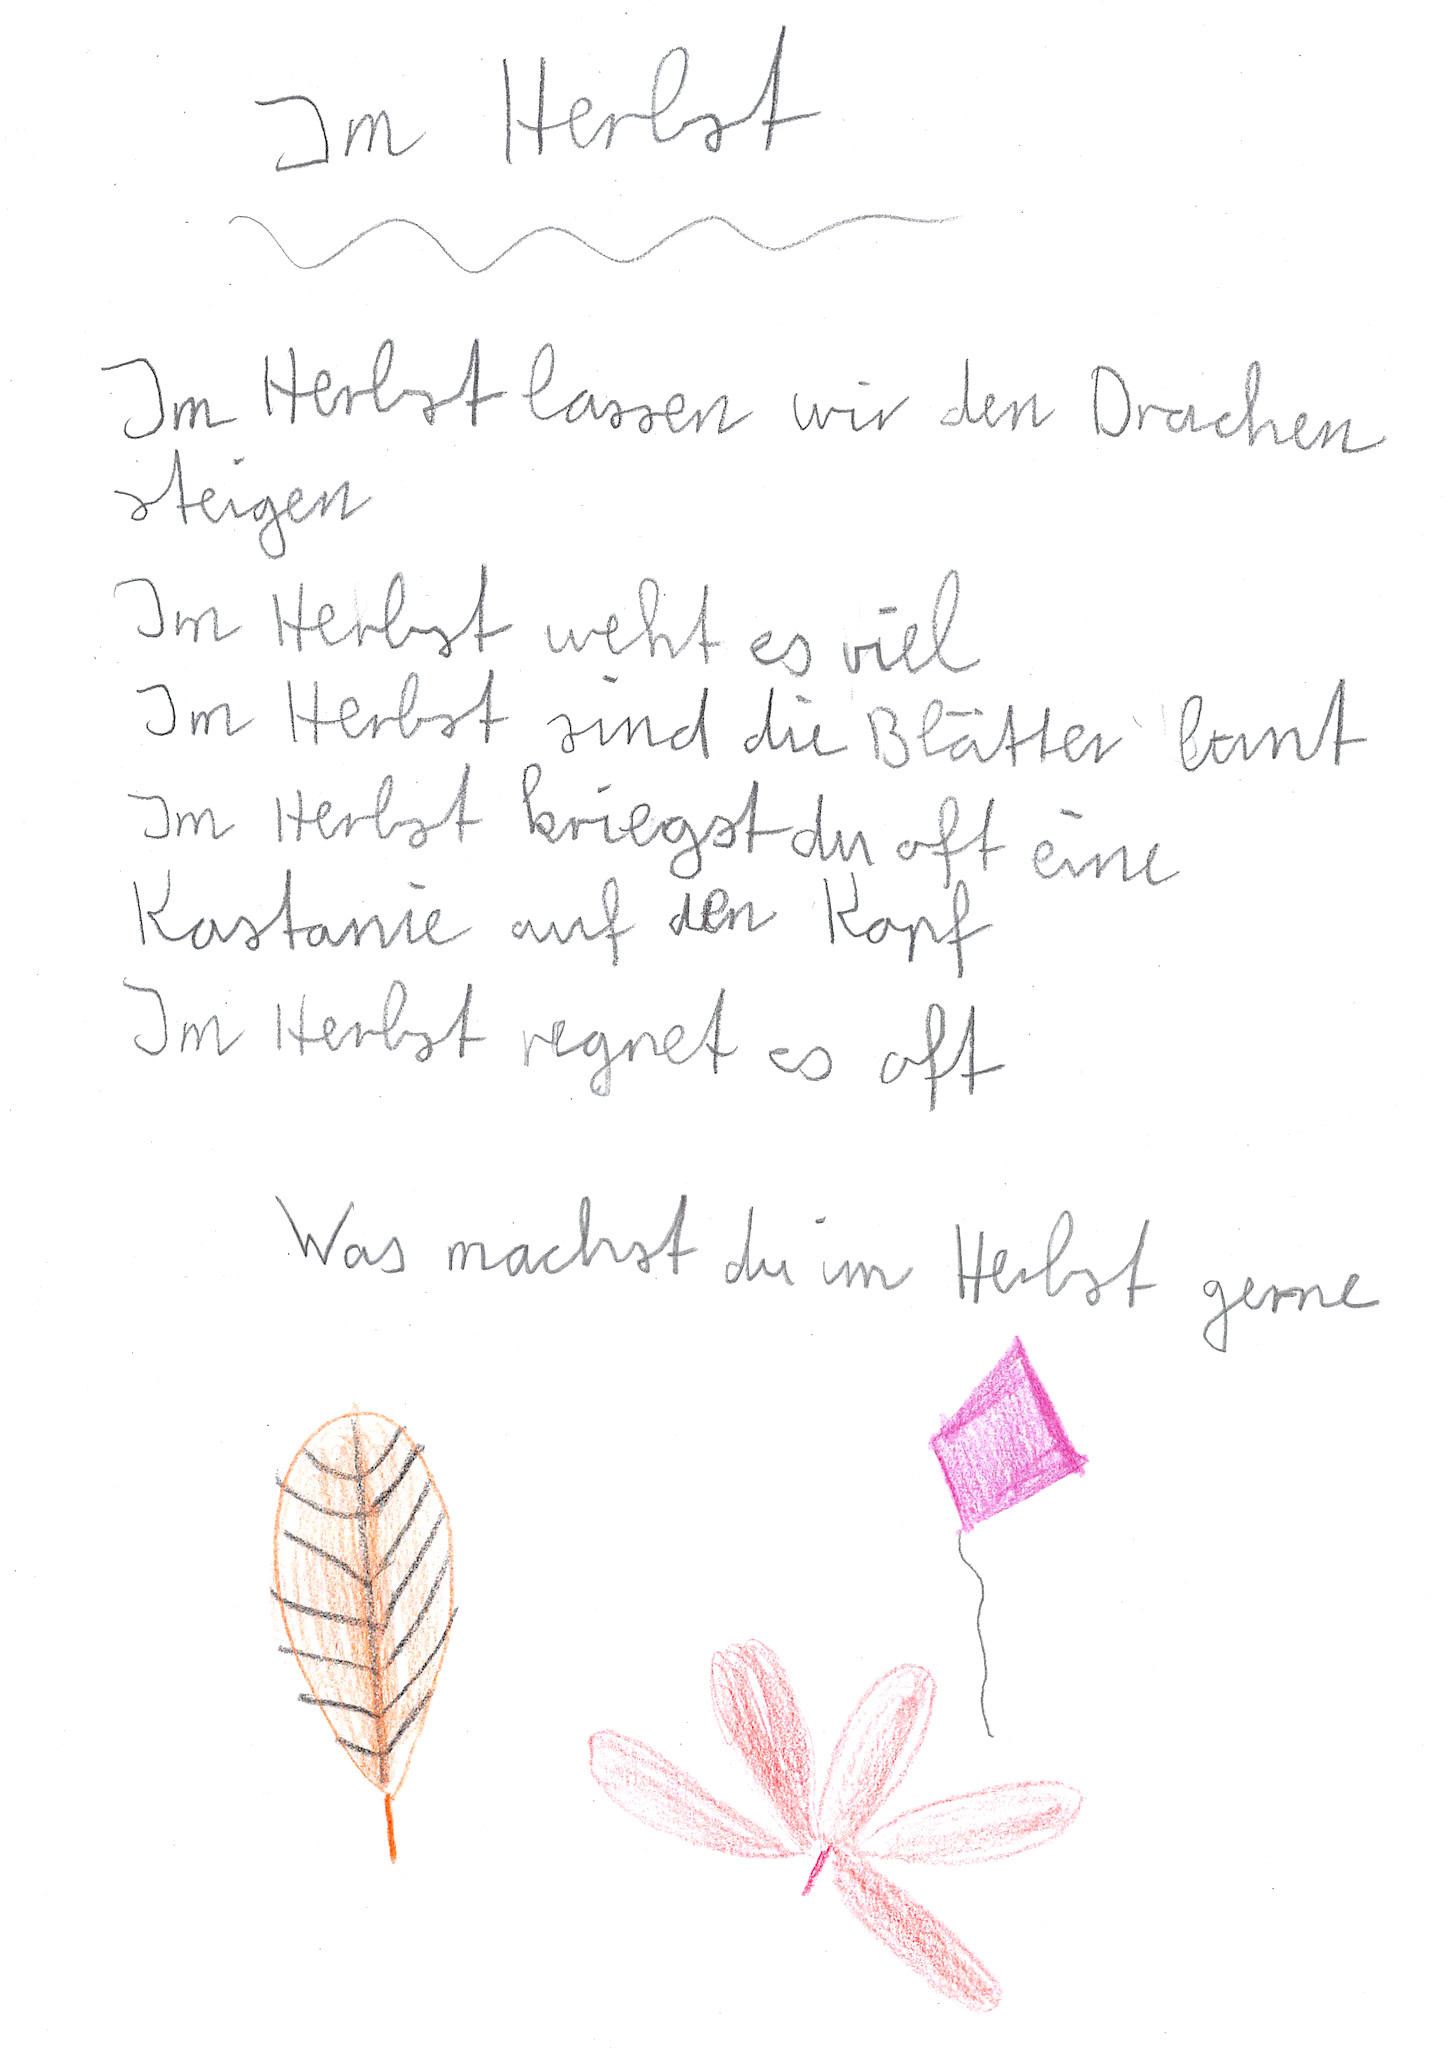 Im Herbst
Im Herbst lassen wir den Drachen
steigen
Im Herbst weht es viel
Im Herbst sind die Blätter bunt
Im Herbst kriegst du oft eine
Kastanie auf den Kopf
Im Herbst regnet es oft
Was machst du im Herbst gerne